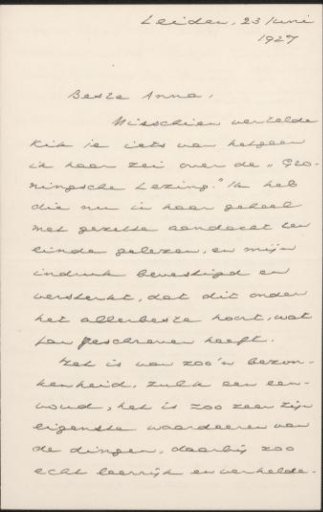 Leiden, 23 Juni
1927
Beste Anna,
Misschien vertelde
Kik je iets van hetgeen
ik haar zei over de „Gro-
ningsche Lezing." Ik heb
die nu in haar geheel
met gezette aandacht ten
einde gelezen, en mijn
indruk bevestigd en
versterkt, dat dit onder
het allerbeste hoort, wat
Jan geschreven heeft.
Het is van zoo'n bezon-
kenheid, zulk een een-
voud, het is zoo zeer zijn
eigenste waardeeren van
de dingen, daarbij zoo
echt leerrijk en verhelde-